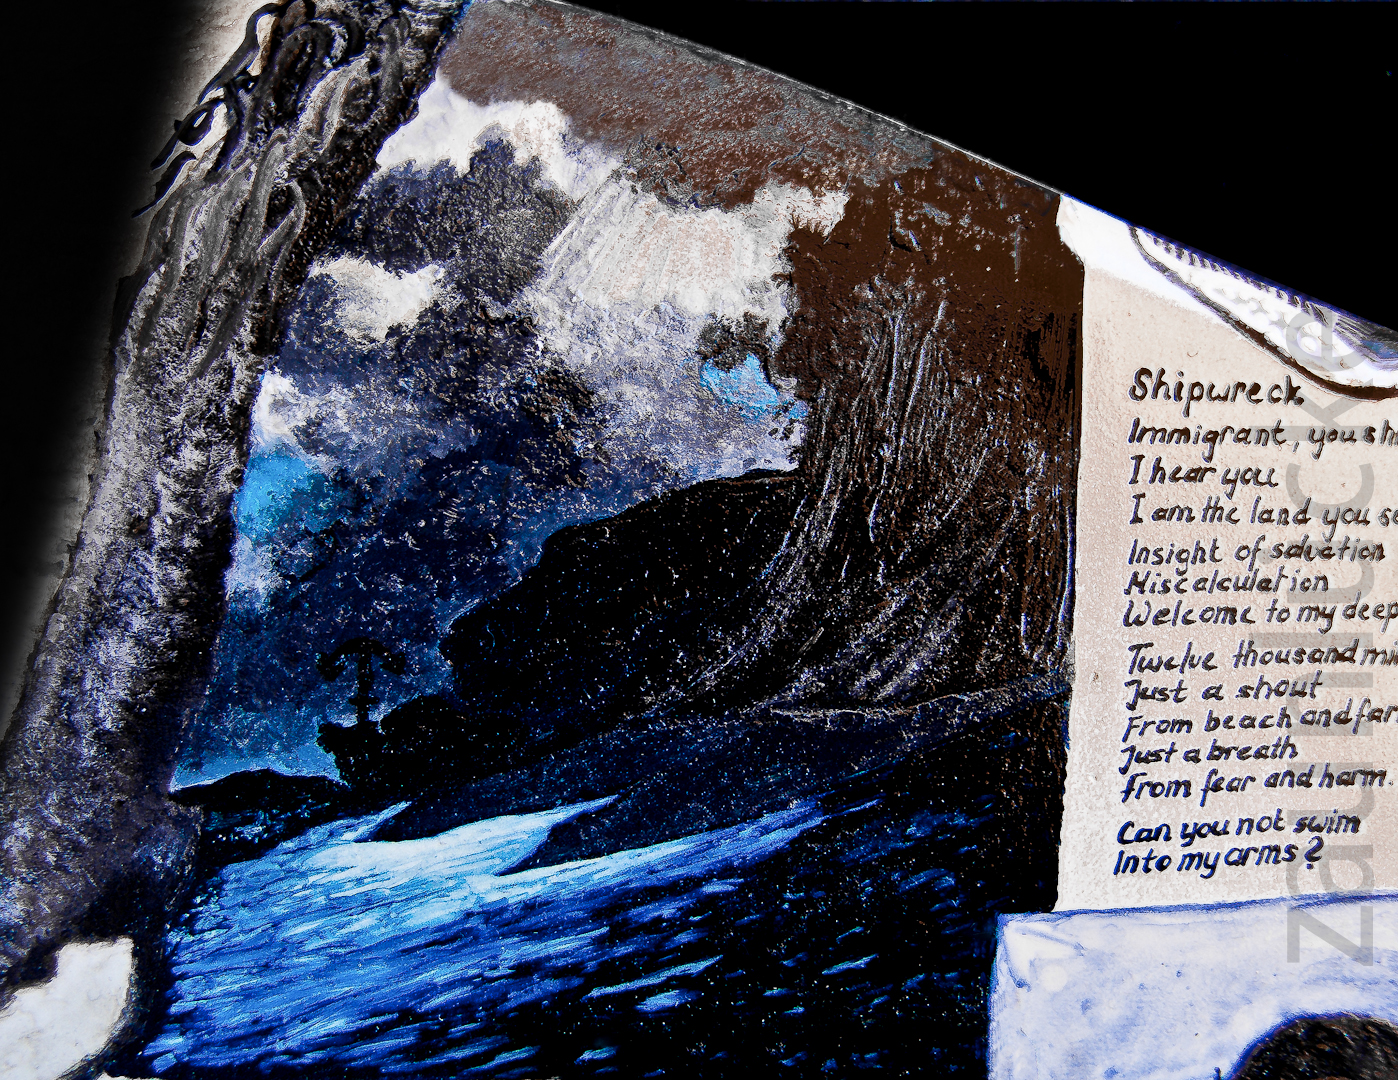 Shipwreck
Immigrant, you sh
I hear you
I am the land you se
Insight of salvation
Miscalculation
Welcome to my deep
Twelve thousand mi
Just a shout
From beach and far
Just a breath
From fear and harm.
Can you not swim
Into my arms?